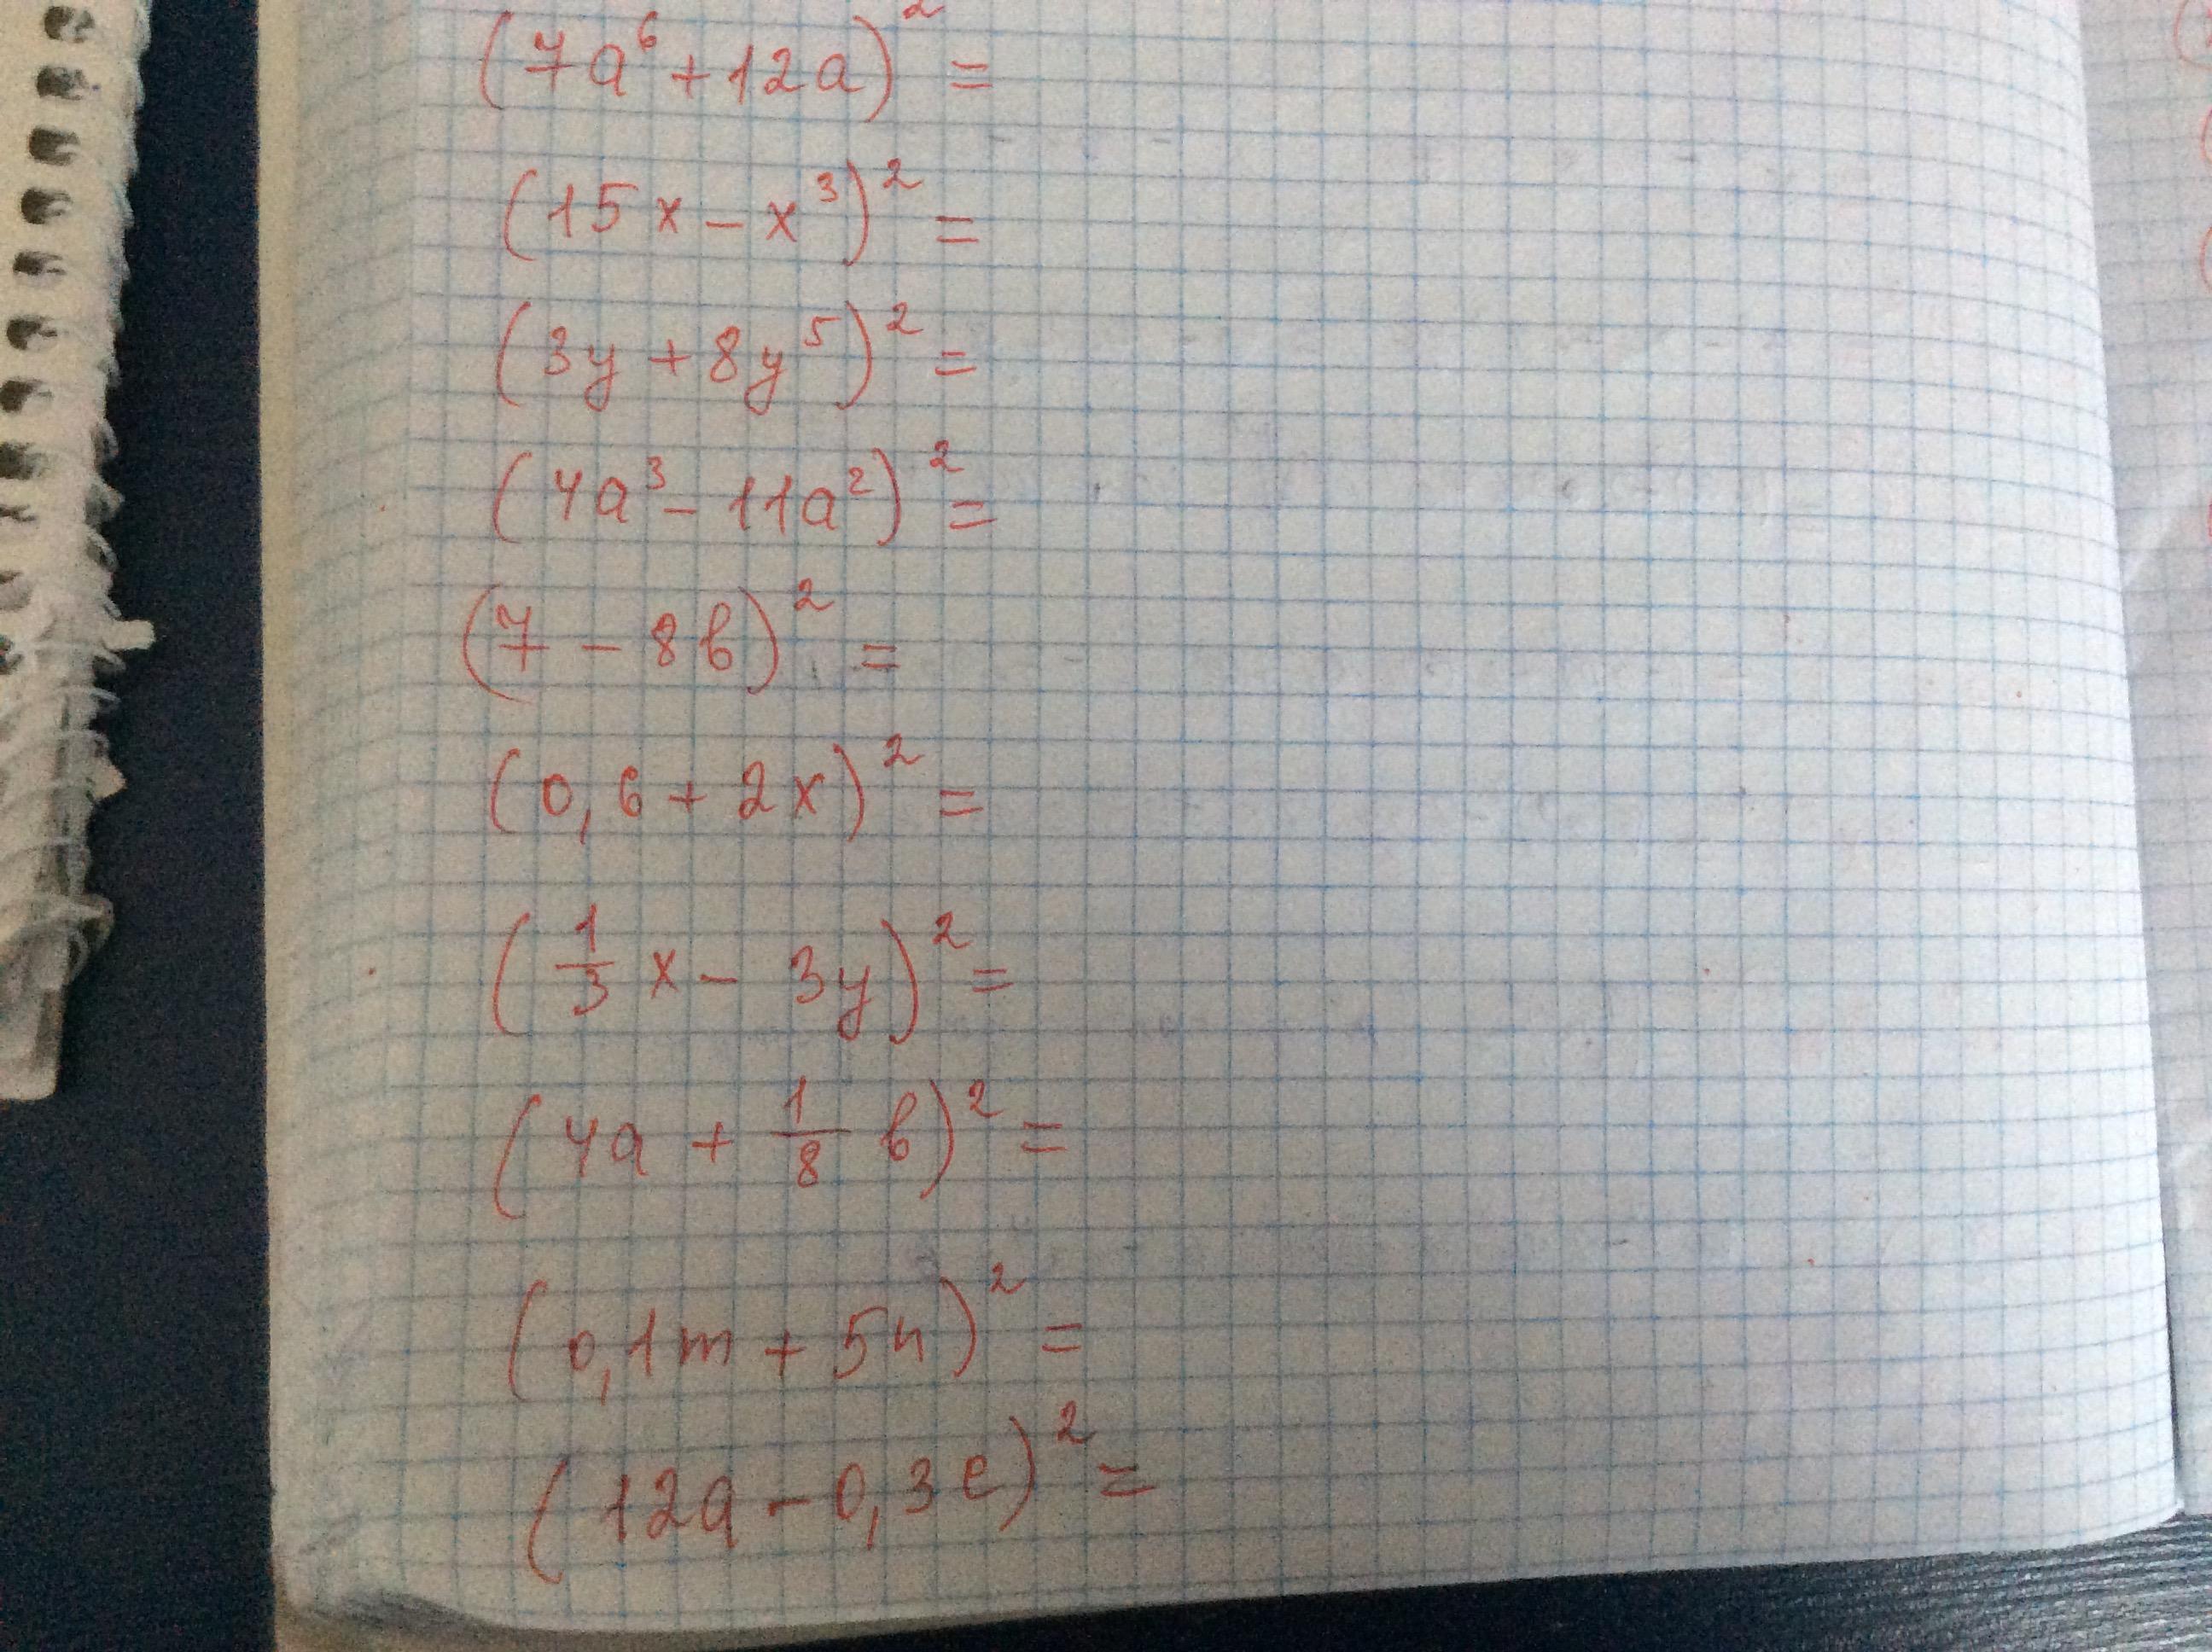 (7a⁶ + 12a)² =
(15x - x³)² =
(3y + 8y⁵)² =
(4a³ - 11a²)² =
(7 - 8b)² =
(0,6 + 2x)² =
(1/3 x - 3y)² =
(4a + 1/8 b)² =
(0,1m + 5n)² =
(12a - 0,3c)² =